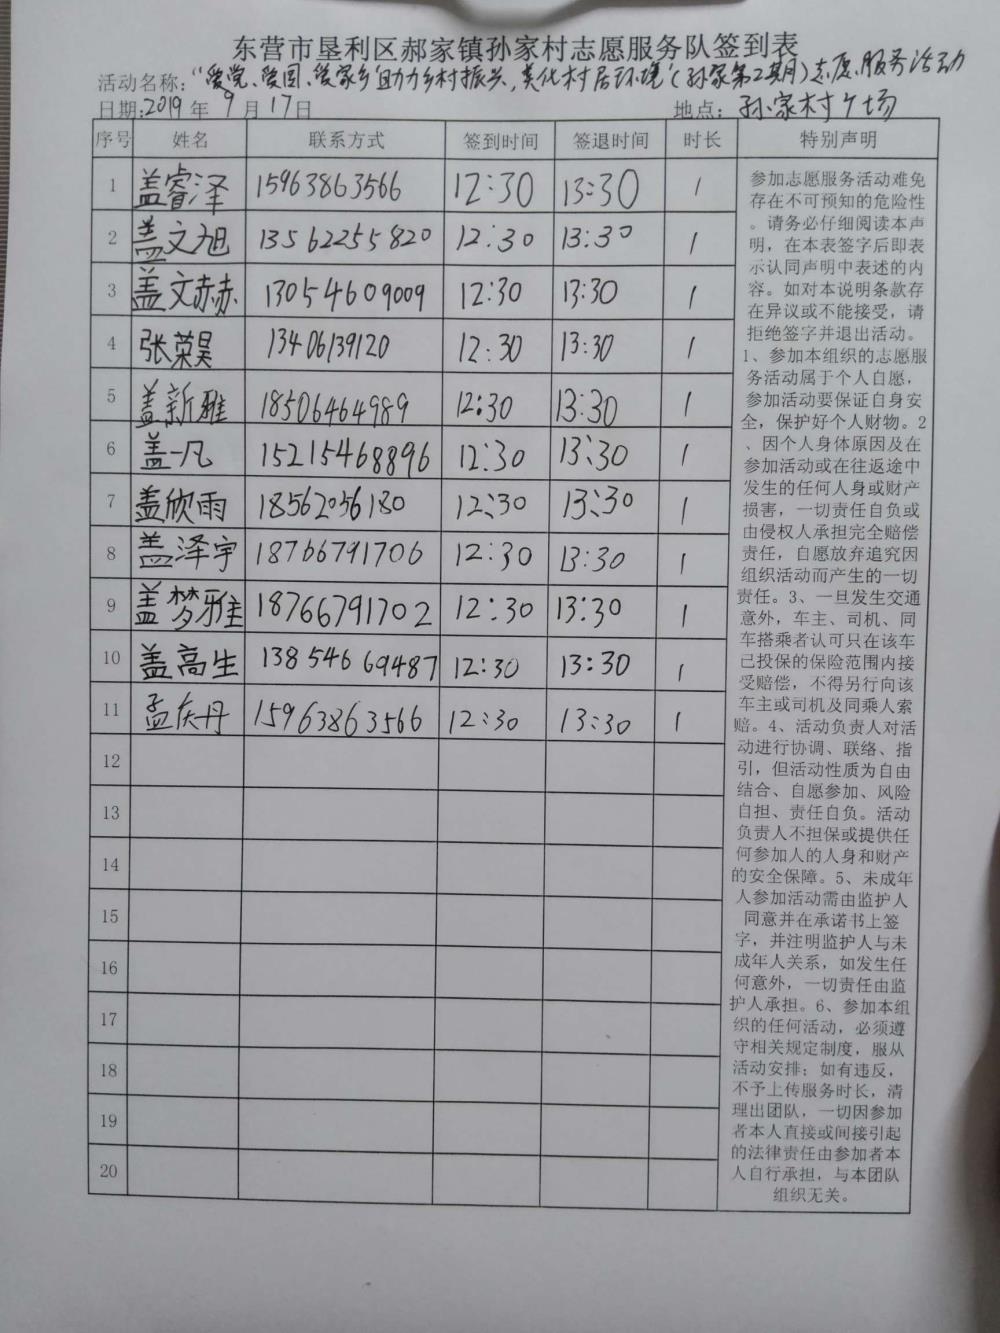 东营市垦利区郝家镇孙家村志愿服务队签到表
活动名称：“爱党、爱国、爱家乡 助力乡村振兴，美化村居环境”（孙家第2期）志愿服务活动
日期：2019 年 9 月 17 日 地点：孙家村广场
序号 姓名 联系方式 签到时间 签退时间 时长 特别声明
1 盖睿泽 15963863566 12:30 13:30 1
2 盖文旭 13562255820 12:30 13:30 1
3 盖文赫 13054609009 12:30 13:30 1
4 张荣昊 13406139120 12:30 13:30 1
5 盖新雅 18506464989 12:30 13:30 1
6 盖一凡 15215468896 12:30 13:30 1
7 盖欣雨 18562056180 12:30 13:30 1
8 盖泽宇 18766791706 12:30 13:30 1
9 盖梦雅 18766791702 12:30 13:30 1
10 盖高生 13854669487 12:30 13:30 1
11 孟庆丹 15963863566 12:30 13:30 1
12
13
14
15
16
17
18
19
20
参加志愿服务活动难免
存在不可预知的危险性
。请务必仔细阅读本声
明，在本表签字后即表
示认同声明中表述的内
容。如对本说明条款存
在异议或不能接受，请
拒绝签字并退出活动。
1、参加本组织的志愿服
务活动属于个人自愿，
参加活动要保证自身安
全，保护好个人财物。2
、因个人身体原因及在
参加活动或在往返途中
发生的任何人身或财产
损害，一切责任自负或
由侵权人承担完全赔偿
责任，自愿放弃追究因
组织活动而产生的一切
责任。3、一旦发生交通
意外，车主、司机、同
车搭乘者认可只在该车
已投保的保险范围内接
受赔偿，不得另行向该
车主或司机及同乘人索
赔。4、活动负责人对活
动进行协调、联络、指
引，但活动性质为自由
结合、自愿参加、风险
自担、责任自负。活动
负责人不担保或提供任
何参加人的人身和财产
的安全保障。5、未成年
人参加活动需由监护人
同意并在承诺书上签
字，并注明监护人与未
成年人关系，如发生任
何意外，一切责任由监
护人承担。6、参加本组
织的任何活动，必须遵
守相关规定制度，服从
活动安排；如有违反，
不予上传服务时长，清
理出团队，一切因参加
者本人直接或间接引起
的法律责任由参加者本
人自行承担，与本团队
组织无关。